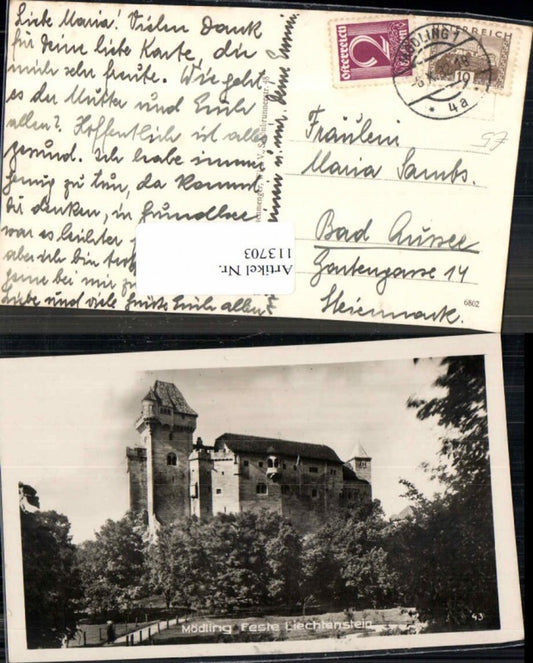 Liebe Maria! Vielen Dank
für Deine liebe Karte, die
mich sehr freute. Wie geht
es der Mutter und Euch
allen? Hoffentlich ist alles
gesund. Ich habe immer
genug zu tun, da kommt
zu denken, in Grundlsee
war es leichter
aber ich bin
gerne bei mir zu
Liebe und viele Grüße Euch allen
österreich
2
ÖSTERREICH
MÖDLING 1
4a
Fräulein
Maria Sambs.
Bad Aussee
Gartengasse 14
Steiermark.
6092
Artikel Nr.
113703
Mödling Feste Liechtenstein
43